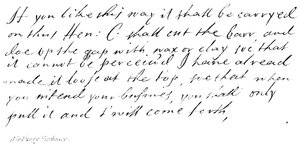 If you like this way it shall be carryed
on thus Hen: C shall cut the barr and
doe up the gap with wax or clay soe that
it cannot be perceivd I have alread
made it loose at the top, soe that when
you intend your busines, you shall only
pull it and t'will come forth,